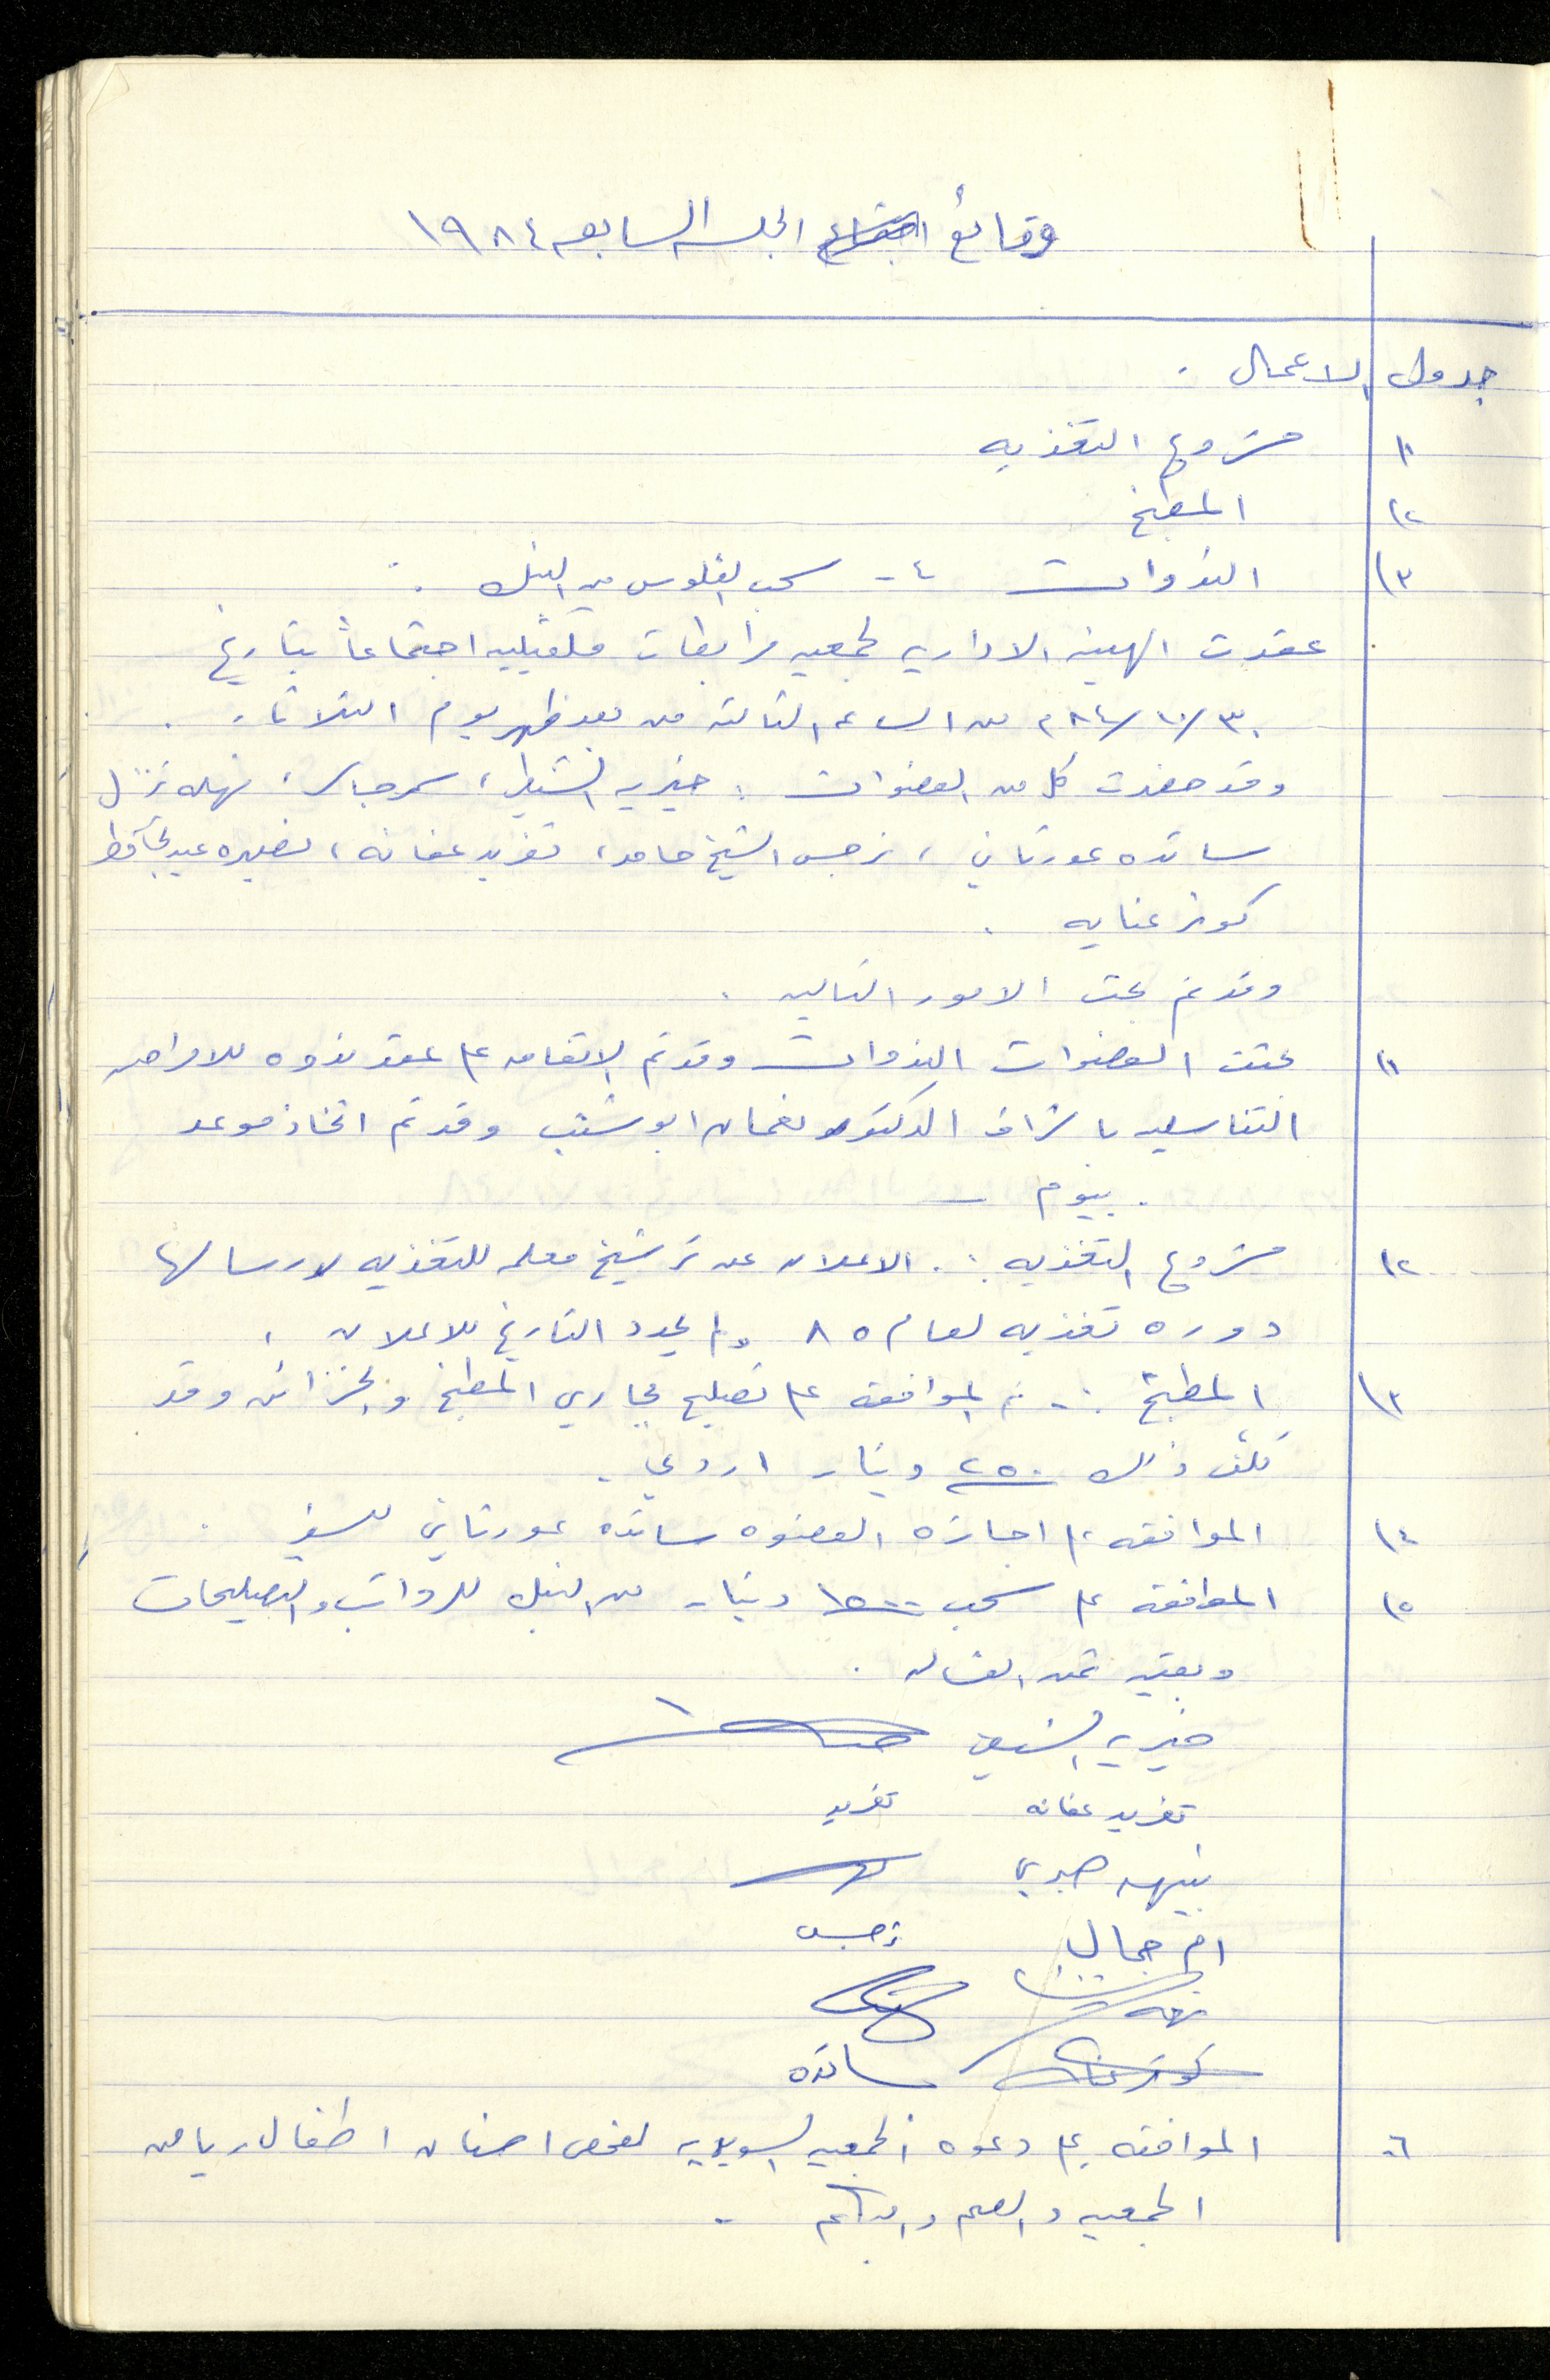 وقائع الجلسه السابعه ١٩٨٤
جدول الاعمال .
١) مشروع التغذيه
٢) المطبخ
٣) الندوات ٤- سحب الفلوس من البنك .
عقدت الهيئه الاداريه لجمعيه مرابطات قلقيليه اجتماعاً بتاريخ
٣٠/١٠/٨٤م من الساعه الثالثه من بعد ظهر يوم الثلاثاء .
وقد حضرت كل من العضوات : خيريه الشنطي ، سمر جباره ، نهله نزال
سائده عورتاني ، نرجس الشيخ حامد ، تغريد عفانه ، نصيره عبد الحافظ
كوثر عنايه .
وقد تم بحث الامور التاليه .
١) بحثت العضوات الندوات وقد تم الاتفاق على عقد ندوه للامراض
التناسليه باشراف الدكتور نعمان ابو شنب وقد تم اتخاذ موعد
بيوم
٢) مشروع التغذيه : . الاعلان عن ترشيح معلمه للتغذيه لارسالها
دوره تغذيه لعام ٨٥ ولم يحدد التاريخ للاعلان .
٣) المطبخ :- تم الموافقه على تصليح مجاري المطبخ والخزائن وقد
كلف ذلك ٢٥٠ دينار اردني .
٤) الموافقه على اجازه العضوه سائده عورتاني للسفر .
٥) الموافقه على سحب ١٥٠٠ دينار من البنك للرواتب والتصليحات
وبقيه ثمن الغساله .
خيريه الشنطي
تغريد عفانه تغريد
نبيهه صبري
ام جمال نرجس
نهله
كوثر عنايه سائده
٦- الموافقه على دعوه الجمعيه السويديه لفحص اسنان اطفال رياض
الجمعيه والصم والبكم .